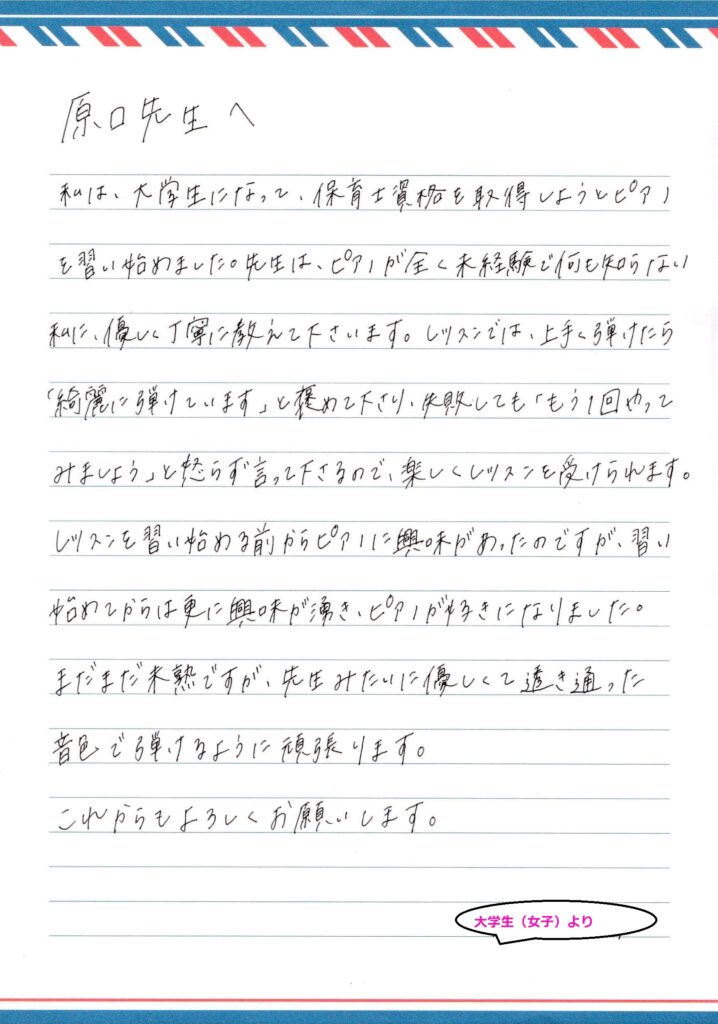 原口先生へ
私は、大学生になって、保育士資格を取得しようとピアノ
を習い始めました。先生は、ピアノが全く未経験で何も知らない
私に、優しく丁寧に教えて下さいます。レッスンでは、上手く弾けたら
「綺麗に弾けています」と褒めて下さり、失敗しても「もう1回やって
みましょう」と怒らず言って下さるので、楽しくレッスンを受けられます。
レッスンを習い始める前からピアノに興味があったのですが、習い
始めてからは更に興味が湧き、ピアノが好きになりました。
まだまだ未熟ですが、先生みたいに優しくて透き通った
音色で弾けるように頑張ります。
これからもよろしくお願いします。
大学生（女子）より